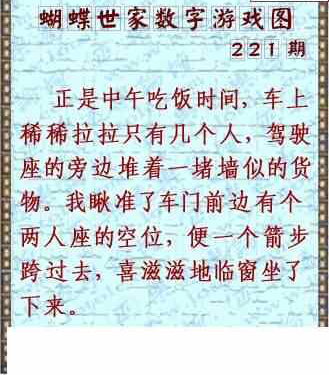 蝴蝶世家数字游戏图
221期
正是中午吃饭时间，车上
稀稀拉拉只有几个人，驾驶
座的旁边堆着一堵墙似的货
物。我瞅准了车门前边有个
两人座的空位，便一个箭步
跨过去，喜滋滋地临窗坐了
下来。